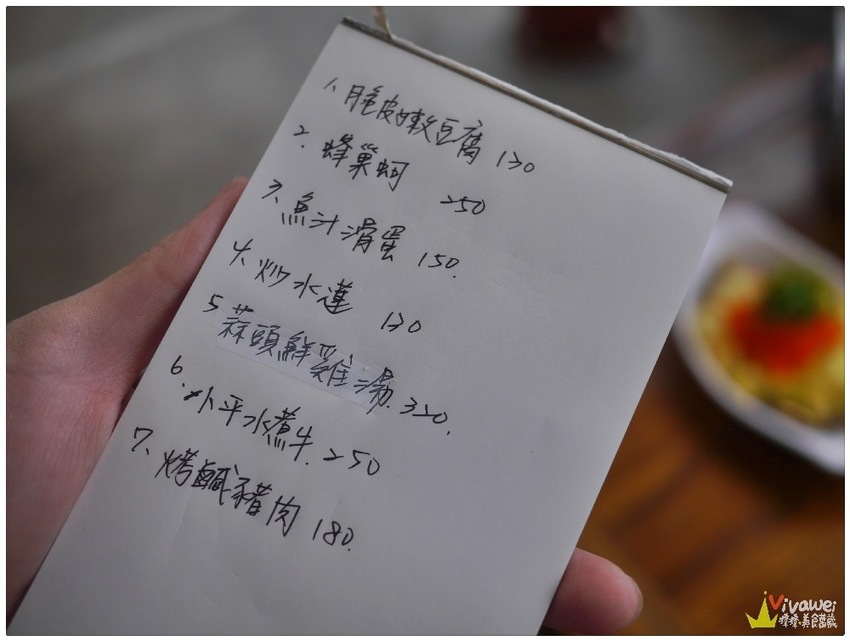 1. 脆皮嫩豆腐 130
2. 蜂巢蚵 250
3. 魚汁滑蛋 150.
4. 炒水蓮 130
5 蒜頭鮮雞湯. 320.
6. 外平水煮牛. 250
7. 烤鹹豬肉 180.
Viyawei